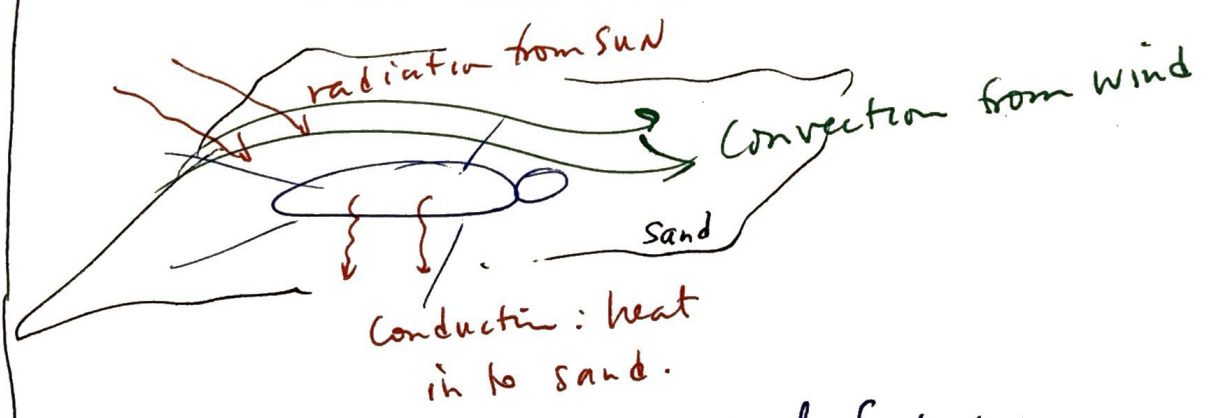 radiation from SUN
Convection from wind
Sand
Conduction : heat
in to sand.